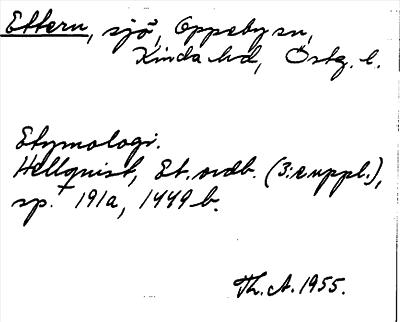 Ettern, sjö, Oppeby sn,
Kinda hd, Östg. l.
Etymologi.
Hellquist, Et. ordb. (3:e uppl.),
sp. 191a, 1449 b.
Th. A. 1955.